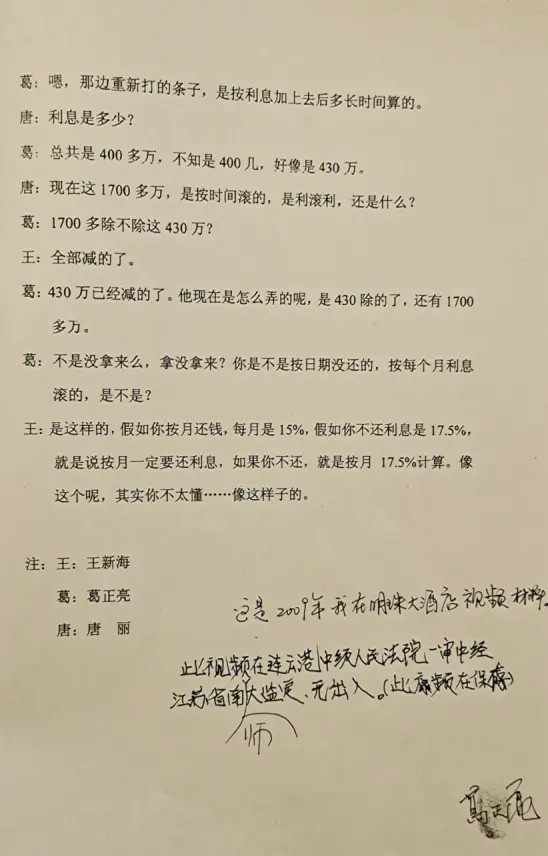 葛：嗯，那边重新打的条子，是按利息加上去后多长时间算的。
唐：利息是多少？
葛：总共是 400 多万，不知是 400 几，好像是 430 万。
唐：现在这 1700 多万，是按时间滚的，是利滚利，还是什么？
葛：1700 多除不除这 430 万？
王：全部减的了。
葛：430 万已经减的了。他现在是怎么弄的呢，是 430 除的了，还有 1700
多万。
葛：不是没拿来么，拿没拿来？你是不是按日期没还的，按每个月利息
滚的，是不是？
王：是这样的，假如你按月还钱，每月是 15%，假如你不还利息是 17.5%，
就是说按月一定要还利息，如果你不还，就是按月 17.5%计算。像
这个呢，其实你不太懂……像这样子的。
注：王：王新海
葛：葛正亮
唐：唐 丽
这是2009年我在明珠大酒店视频材料。
此视频在连云港中级人民法院一审中经
江苏省南大鉴定，无出入。(此视频在保存)
师
葛正亮